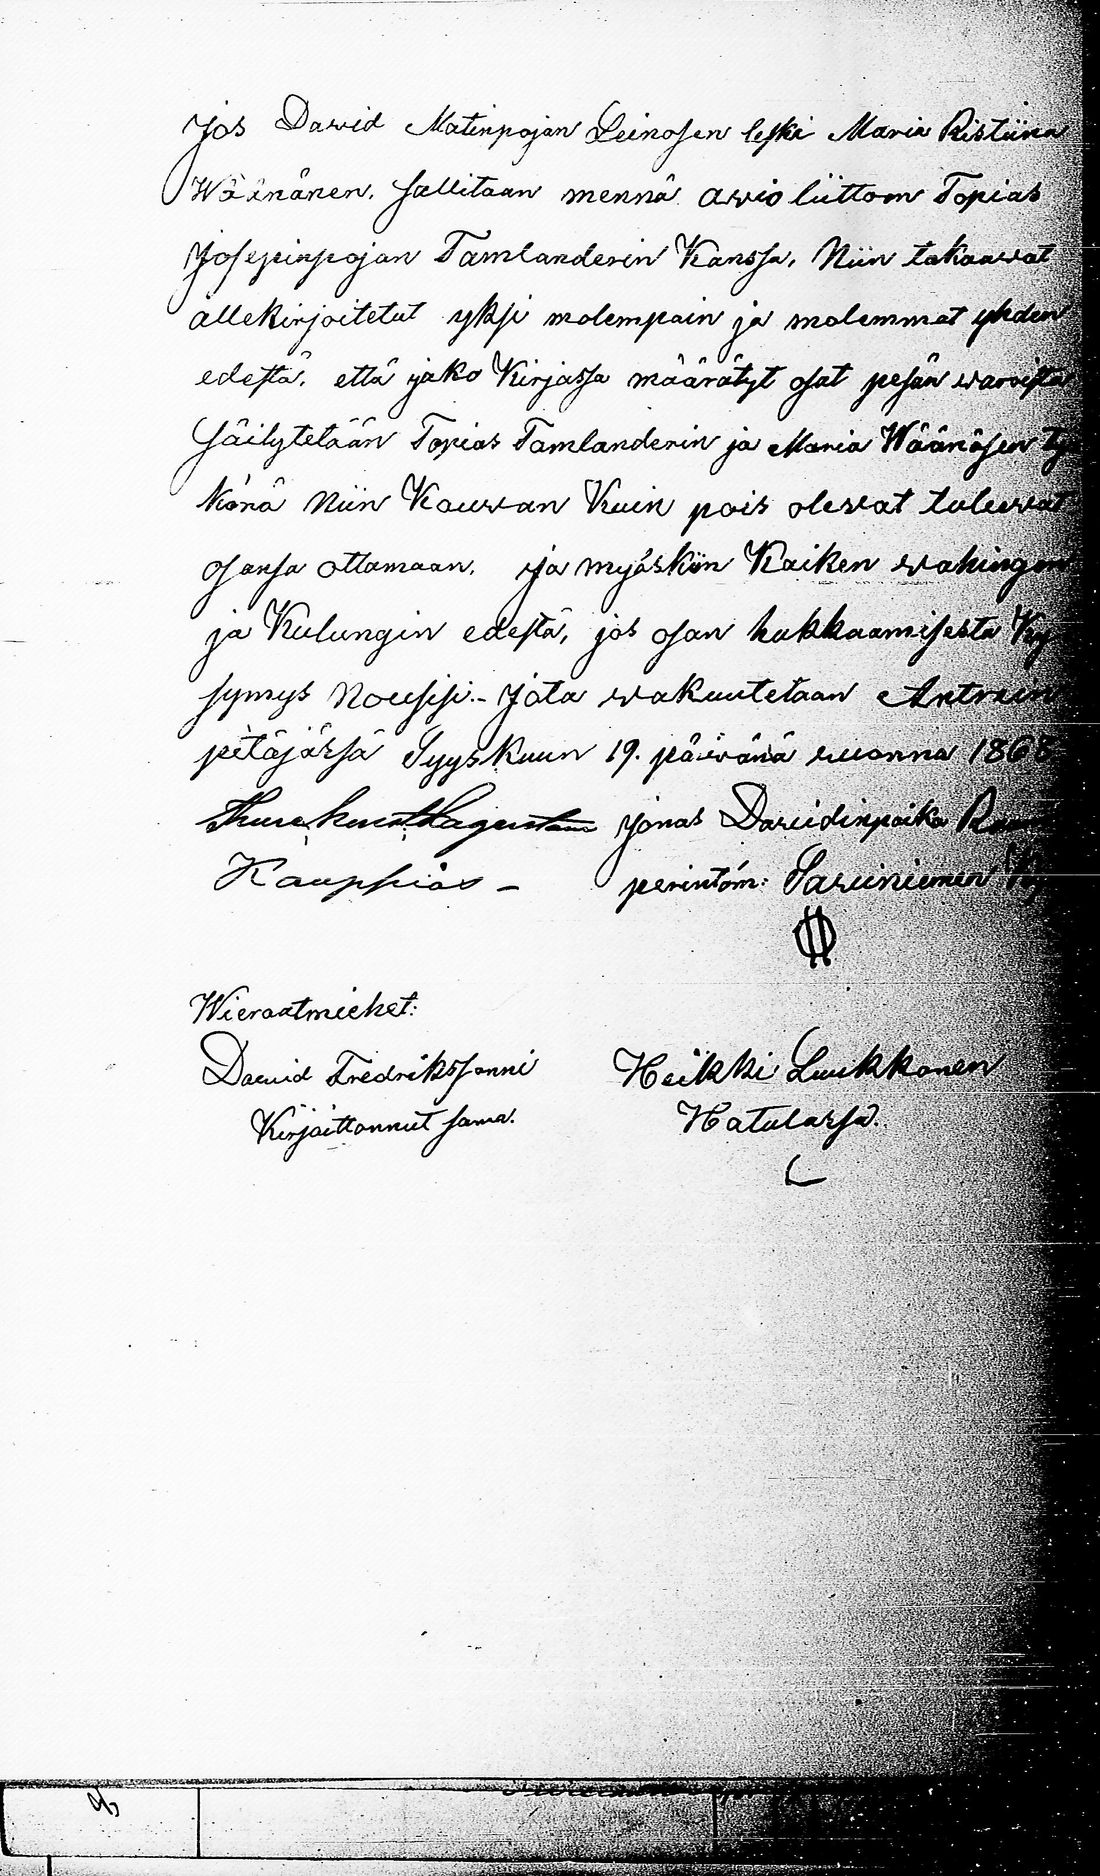 Jos David Matinpojan Leinosen leski Maria Ristiina
Wäänänen, sallitaan mennä avio liittoon Topias
Josepinpojan Tamlanderin Kanssa, Niin takaavat
allekirjoitetut yksi molempain ja molemmat yhden
edestä, että jako Kirjassa määrätyt osat pesän varoista
Säilytetään Topias Tamlanderin ja Maria Wäänäsen ty
könä Niin Kauvan Kuin pois olevat tulevat
osansa ottamaan, ja myöskin Kaiken vahingon
ja Kulungin edestä, jos osan hukkaamisesta Ky
symys Nousisi.- Jota vakuutetaan Antrein
pitäjässä Syyskuun 19. päivänä vuonna 1868
Jonas Davidinpoika
Kauppias - perintöm: Saviniemen Ky
Wieraatmiehet:
David Fredrikssonni Heikki Luukkonen
Kirjoittannut sama. Hatulassa.